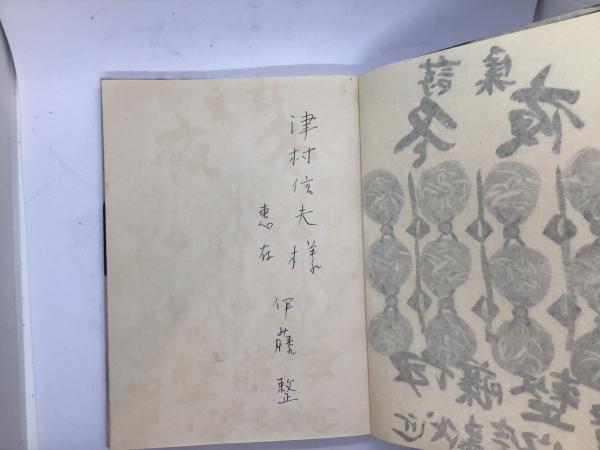 津村信夫様
恵存
伊藤整
詩集
冬夜
伊藤整